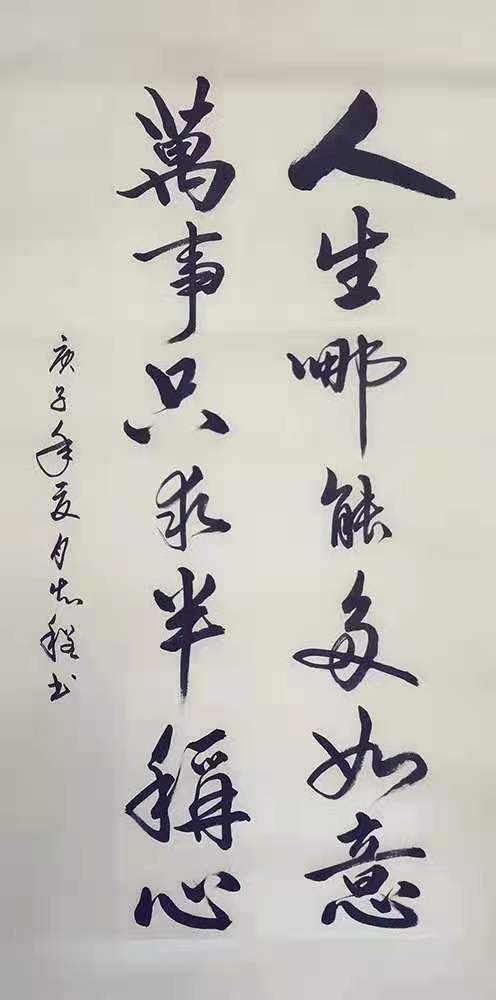 人生哪能多如意
萬事只求半稱心
庚子年夏月志程书